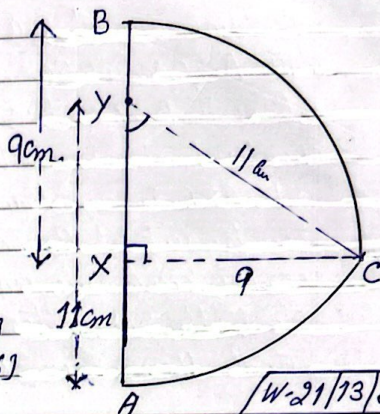 B
9cm.
Y
11cm
X
9
C
11cm
A
W-21/13/